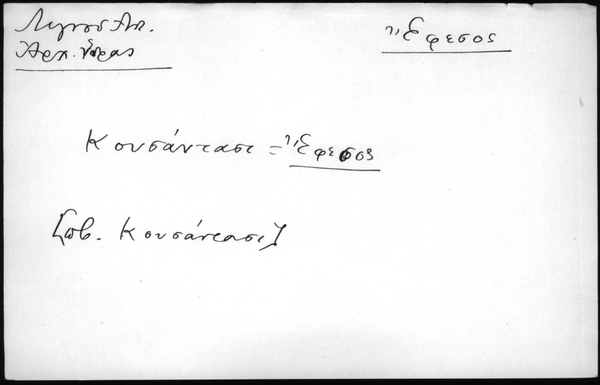 Λιγνοσ Αν.
Αρχ. Θήρας
Ἔφεσος
Κουσάντασι = Ἔφεσος
[πβ. Κουσάντασι]